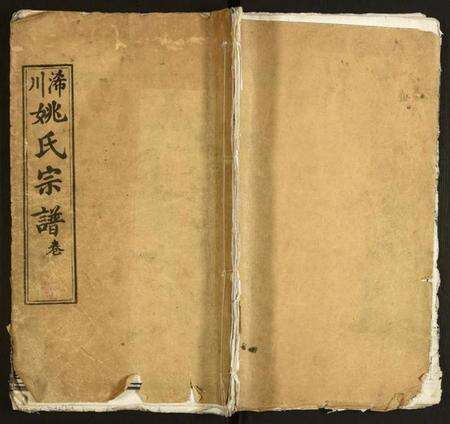 浠川
姚氏宗譜
卷